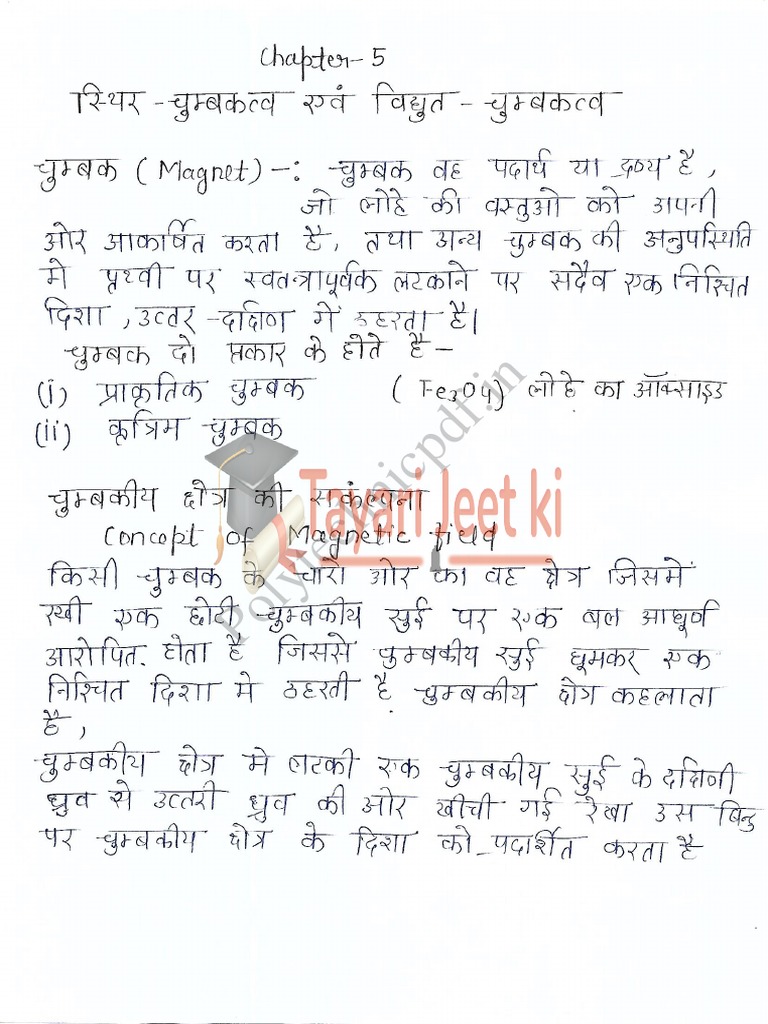 Chapter-5
स्थिर-चुम्बकत्व एवं विद्युत-चुम्बकत्व
चुम्बक (Magnet) -: चुम्बक वह पदार्थ या द्रव्य है,
जो लोहे की वस्तुओ को अपनी
ओर आकर्षित करता है, तथा अन्य चुम्बक की अनुपस्थिति
मे पृथ्वी पर स्वतन्त्रापूर्वक लटकाने पर सदैव एक निश्चित
दिशा, उत्तर-दक्षिण में ठहरता है।
चुम्बक दो प्रकार के होते है-
(i) प्राकृतिक चुम्बक (Fe3O4) लोहे का ऑक्साइड
(ii) कृत्रिम चुम्बक
चुम्बकीय क्षेत्र की सकंल्पना
Concept of Magnetic field
किसी चुम्बक के चारो ओर का वह क्षेत्र जिसमें
रखी एक छोटी चुम्बकीय सुई पर एक बल आघूर्व
आरोपित होता है जिससे चुम्बकीय सुई घूमकर एक
निश्चित दिशा मे ठहरती है चुम्बकीय क्षेत्र कहलाता
है,
चुम्बकीय क्षेत्र मे लटकी एक चुम्बकीय सुई के दक्षिणी
ध्रुव से उत्तरी ध्रुव की ओर खीची गई रेखा उस बिन्दु
पर चुम्बकीय क्षेत्र के दिशा को पदार्शित करता है
Tayari Jeet ki
Polytechnicpdf.in